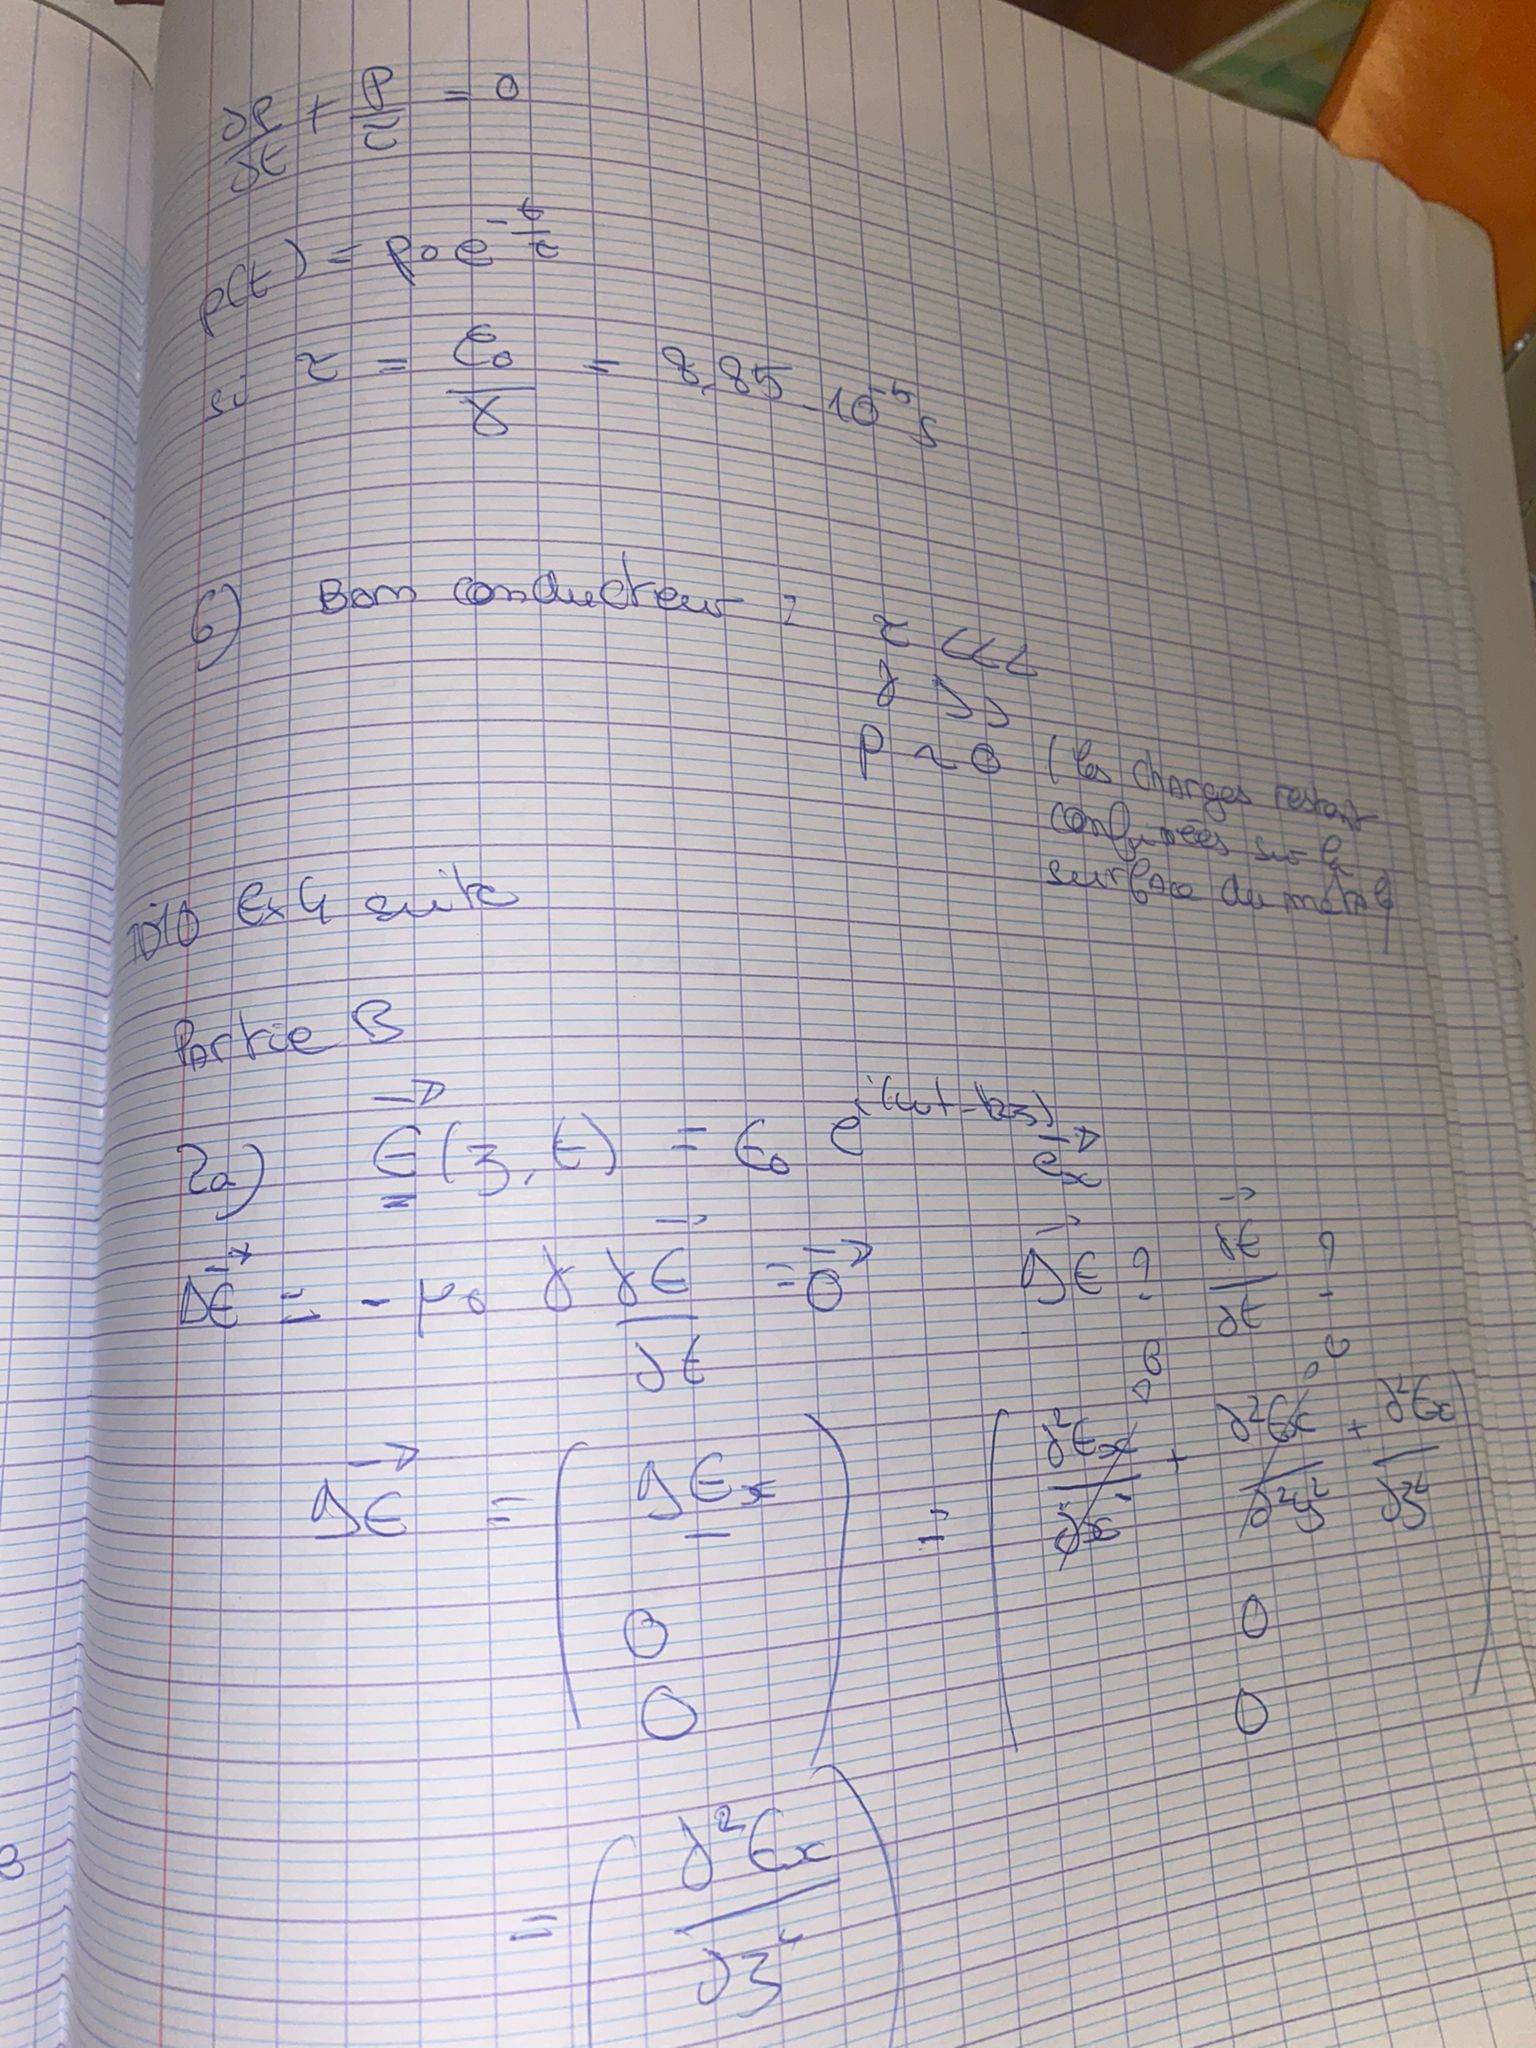 ∂ρ/∂t + ρ/τ = 0
ρ(t) = ρ0 e^(-t/τ)
si τ = ε0/γ = 8,85 . 10^-5 s
6) Bon conducteur : τ <<<
γ >>
ρ ~ 0 (les charges restent
confinées sur la
surface du métal)
Ex 4 suite
Partie B
2a) E⃗(z,t) = E0 e^(i(ωt-kz)) e⃗x
ΔE⃗ = - μ0 γ ∂E⃗/∂t = 0⃗ ΔE⃗ ? ∂E⃗/∂t ?
ΔE⃗ = (ΔEx = (∂²Ex/∂x² + ∂²Ex/∂²y² + ∂²Ex/∂z²
0 0
0) 0)
= (∂²Ex/∂z²